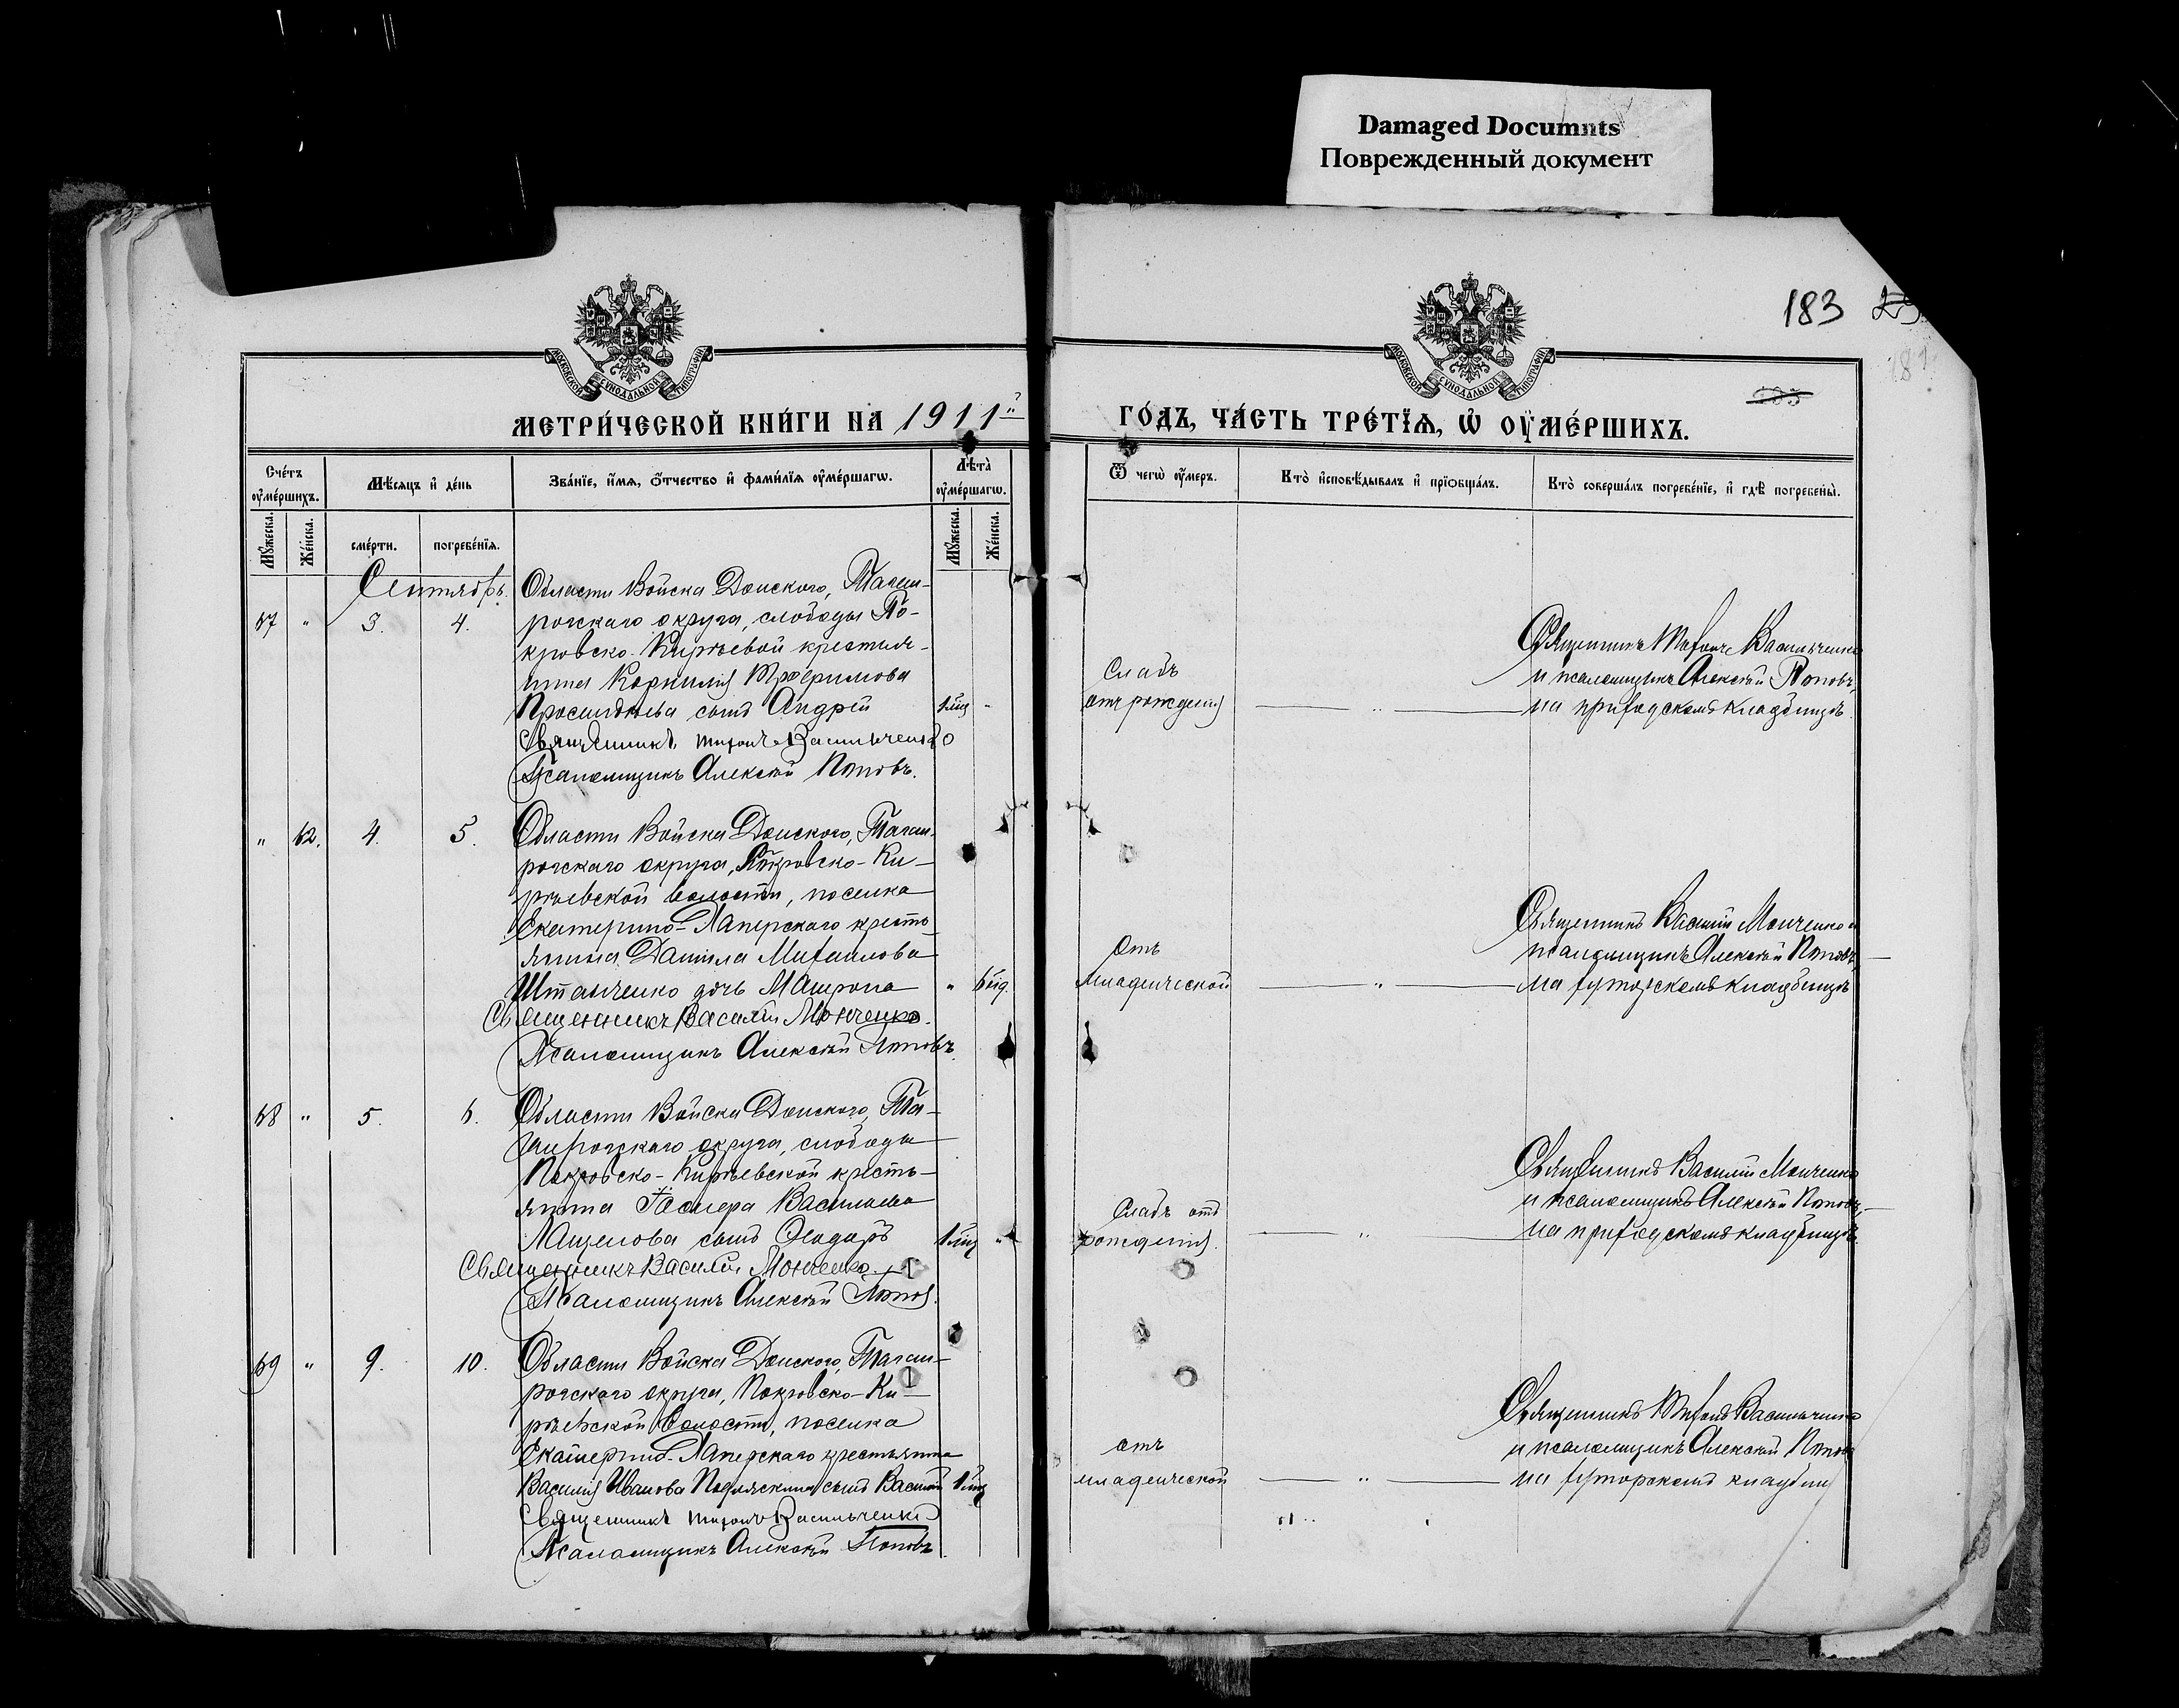 Damaged Documnts
Поврежденный документ
183
МОСКОВСКОЙ СУНОДАЛЬНОЙ ТИПОГРАФІИ
МОСКОВСКОЙ СУНОДАЛЬНОЙ ТИПОГРАФІИ
МЕТРИ́ЧЕСКОЙ КНИ́ГИ НА 1911
ГО́ДЪ, ЧА́СТЬ ТРЕ́ТІѦ, Ѡ҆ ОУ҆МЕ́РШИХЪ.
Сче́тъ оу҆ме́ршихъ.
Мѣ́сяцъ и҆ де́нь
Зва́нїе, и҆́мѧ, ѻ҆́тчество и҆ фами́лїѧ оу҆ме́ршагѡ.
Лѣ́та оу҆ме́ршагѡ.
Ѿ чегѡ̀ оу҆́меръ.
Кто̀ и҆сповѣ́дывалъ и҆ прїѡбща́лъ.
Кто̀ соверша́лъ погребе́нїе, и҆ гдѣ̀ погребены̀.
Мꙋ́жеска.
Же́нска.
сме́рти.
погребе́нїѧ.
Мꙋ́жеска.
Же́нска.
Сентябрь.
Области Войска Донского, Таган-
67 " 3. 4. рогскаго округа, слободы По-
кровско-Кирѣевой крестья-
нина Корнилія Трофимова
сынъ Андрей
Священникъ Тихонъ Васильченко
Псаломщикъ Алексѣй Поповъ.
Слабъ
отъ рожденія
Священникъ Тихонъ Васильченко
и псаломщикъ Алексѣй Поповъ,
на приходскомъ кладбищѣ.
" 62. 4. 5. Области Войска Донского, Таган-
рогскаго округа, Покровско-Ки-
рѣевской волости, поселка
Екатерино-Хаперскаго кресть-
янина Даніила Михаилова
Штанченко дочь Матрона
Священникъ Василій Монченко.
Псаломщикъ Алексѣй Поповъ.
Отъ
младенческой
Священникъ Василій Монченко и
псаломщикъ Алексѣй Поповъ,
на хуторскомъ кладбищѣ
68 " 5. 6. Области Войска Донского, Та-
ганрогскаго округа, слободы
Покровско-Кирѣевской кресть-
янина Василіева
сынъ Ѳеодоръ
Священникъ Василій Монченко.
Псаломщикъ Алексѣй Поповъ.
Слабъ отъ
рожденія.
Священникъ Василій Монченко
и псаломщикъ Алексѣй Поповъ,
на приходскомъ кладбищѣ.
69 " 9. 10. Области Войска Донского, Таган-
рогскаго округа, Покровско-Ки-
рѣевской волости, поселка
Екатерино-Хаперскаго крестьянина
Василія Иванова сынъ Василій
Священникъ Тихонъ Васильченко
Псаломщикъ Алексѣй Поповъ.
отъ
младенческой
Священникъ Тихонъ Васильченко
и псаломщикъ Алексѣй Поповъ
на хуторскомъ кладбищѣ